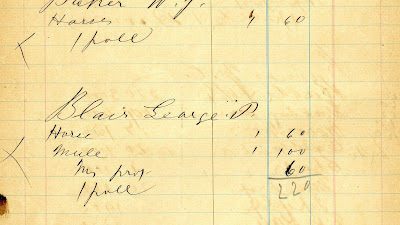 Baker W. J.
Horses 1 60
1 poll
Blair George P.
Horse 1 60
Mule 1 100
Ms prop 60
1 poll 220